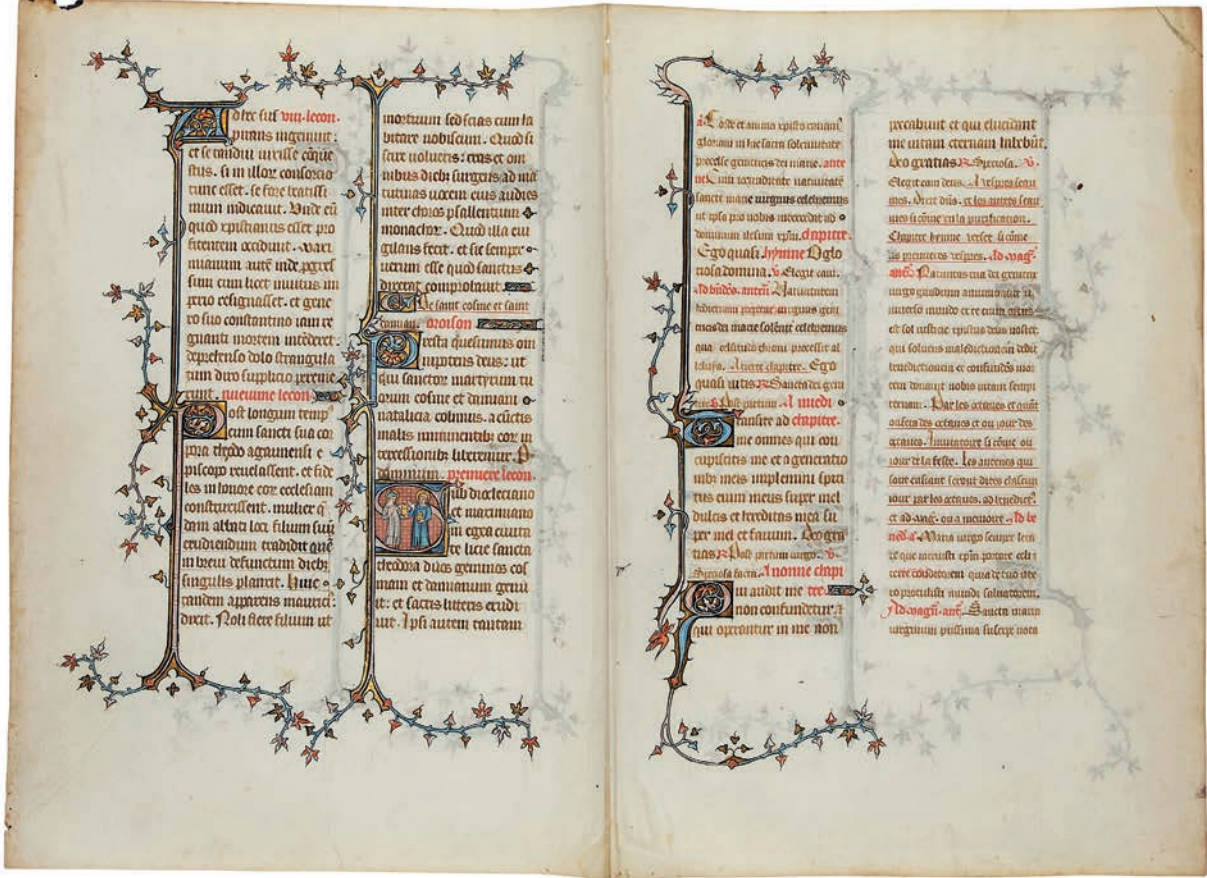 viii. lecon.
ingemuit:
et se tandiu vixisse cōque
stus. si in illor consorcio
tunc esset. se fore beatissi
mum indicauit. Unde cū
quod xpistianus esset pro
fitentem occidunt. Maxi
mianum autē inde pgres
sum cum licet inuitus im
perio resignasset. et gene
ro suo constantino iam re
gnanti mortem intēderet
deprehenso dolo strangula
tum diro supplicio perime
runt. nueuime lecon.
Post longum temp
cum sancti sua cor
pora theodo agaunensi e
piscopo reuelassent. et fide
les in honore eor ecclesiam
construxissent. mulier q
dam abbati loci filium suū
erudiendum tradidit quē
in breui defunctum dieb
singulis planxit. Huic
tandem apparens maurici
dixit. Noli flere filium ut
mortuum sed scias eum ha
bitare nobiscum. Quod si
scire uolueris: cras et om
nibus dieb surgens ad ma
tutinas uocem eius audies
inter choros psallentium
monachor. Quod illa eui
gilans fecit. et sic semper
uerum esse quod sanctus
dixerat comprobauit
De saint cosme et saint
damian. oroison
Presta quesumus om
nipotens deus: ut
qui sanctor martyrum tu
orum cosme et damiani
natalicia colimus. a cūctis
malis imminentib eor in
tercessionib liberemur. P
dominum. premiere lecon.
Sub diocleciano
et maximiano
in egea ciuita
te licie sancta
theodora duos geminos cos
mam et damianum genu
it: et sacris litteris erudi
uit. Ipsi autem tantam
Corde et animo xpisto canam
gloriam in hac sacra solennitate
precelse genitricis dei marie. ante
Cum iocunditate natiuitatē
sancte marie uirginis celebremus
ut ipsa pro nobis intercedat ad
dominum ihesum xpm. chapitre.
Ego quasi. hymne O glo
riosa domina. v. Elegit eam.
Natiuitatem
hodiernam perpetue uirginis geni
tricis dei marie solēnit celebremus
qua celsitudo throni processit al
leluya. A tierce chapitre. Ego
quasi uitis R Sancta dei geni
Post partum. A midi
chapitre.
Transite ad
me omnes qui con
cupiscitis me et a generatio
nib meis implemini spiri
tus enim meus super mel
dulcis et hereditas mea su
per mel et fauum. Deo gra
tias R Post partum uirgo. v.
Speciosa facta. A nonne chapi
Qui audit me tre.
non confundetur &
qui operantur in me non
peccabunt et qui elucidant
me uitam eternam habebūt.
Deo gratias R Speciosa. v.
Elegit eam deus. A vespres seau
mes. Dixit dn̄s. et les autres seau
mes si cōme en la purification.
Chapitre hymne verset si cōme
as premieres vespres. Ad mag.
Natiuitas tua dei genitrix
uirgo gaudium annunciauit u
niuerso mundo ex te enim ortus
est sol iusticie xpistus deus noster
qui soluens maledictionem dedit
benedictionem et confundēs mor
tem donauit nobis uitam sempi
ternam.
octaues. Inuitatoire si cōme ou
iour de la feste. Les antenes qui
sont dites chascun
iour par les octaues. ad benedict.
et ad mag. ou a memoire Ad be
ned. a. Maria uirgo semper leta
re que meruisti xpm portare celi
terre conditorem quia de tuo ute
ro protulisti mundi saluatorem.
Ad magn. ant. Sancta maria
uirginum piissima suscipe uota